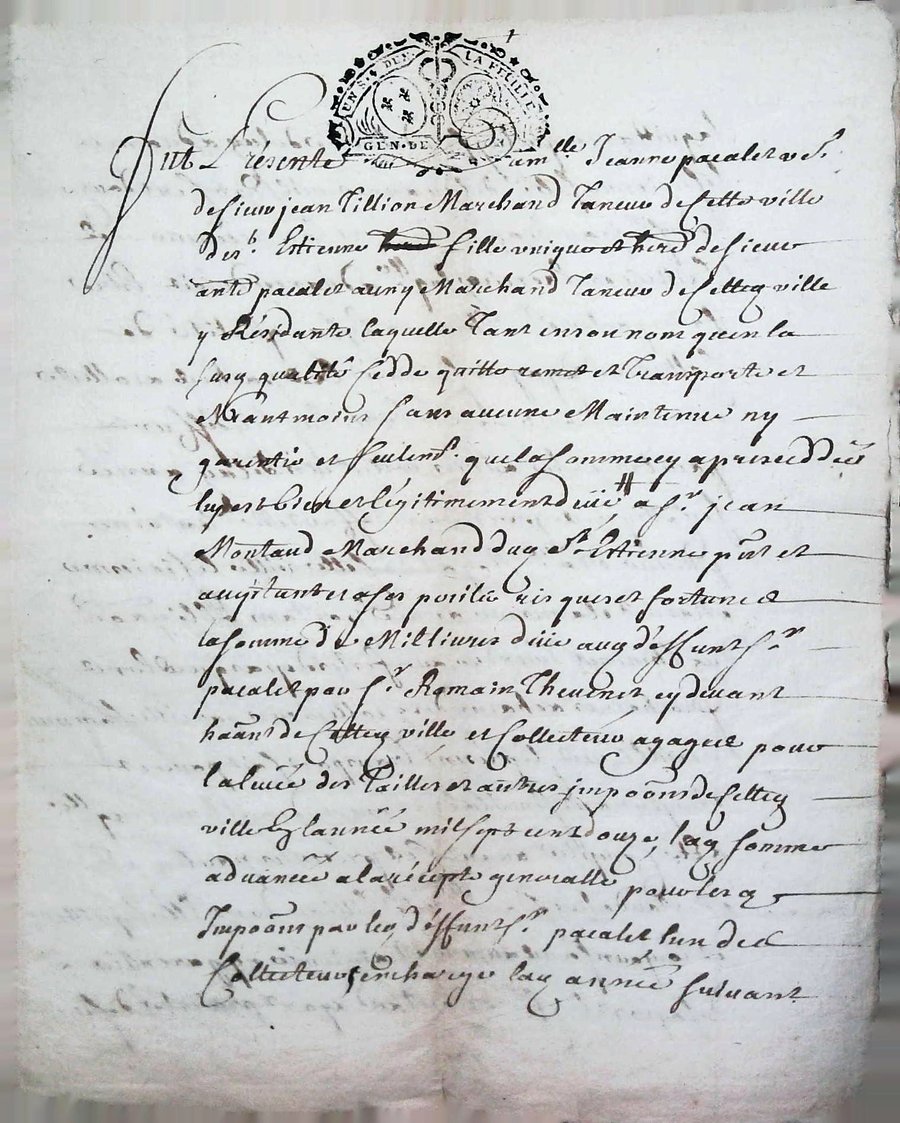 UN S. 4 DEN. LA FEUILLE
GEN. DE
Fut Présente dam.lle Jeanne pacalet v.e
de sieur jean Tillion Marchand Taneur de Cette ville
de s.t Estienne fille unique et herê de sieur
ante pacalet aussy Marchand Taneur de Cetted ville
y Résidante laquelle Tant en son nom qu'en la
susd qualité Cedde quitte remet et Transporte et
Neantmoins sans aucune Maintenue ny
garentie et seulem.t que la somme cy apres ceddée
luy est bien et légitimement düe # a s.r jean
Montaud Marchand dud s.t Estienne p̃nt et
acceptant et a ses perils risques et fortunes
la somme de Mil livres düe aud déffunt s.r
pacalet par s.r Romain Thevenet cy devant
haãnt de Cetted ville et Collecteur agages pour
la levée des Tailles et autres jmpoõns de Cetted
ville En l'année mil sept cent douze, lad somme
advancée a la récepte generalle pour lesd
Impoõns par led déffunt s.r pacalet lun des
Collecteurs en charge lad année suivant